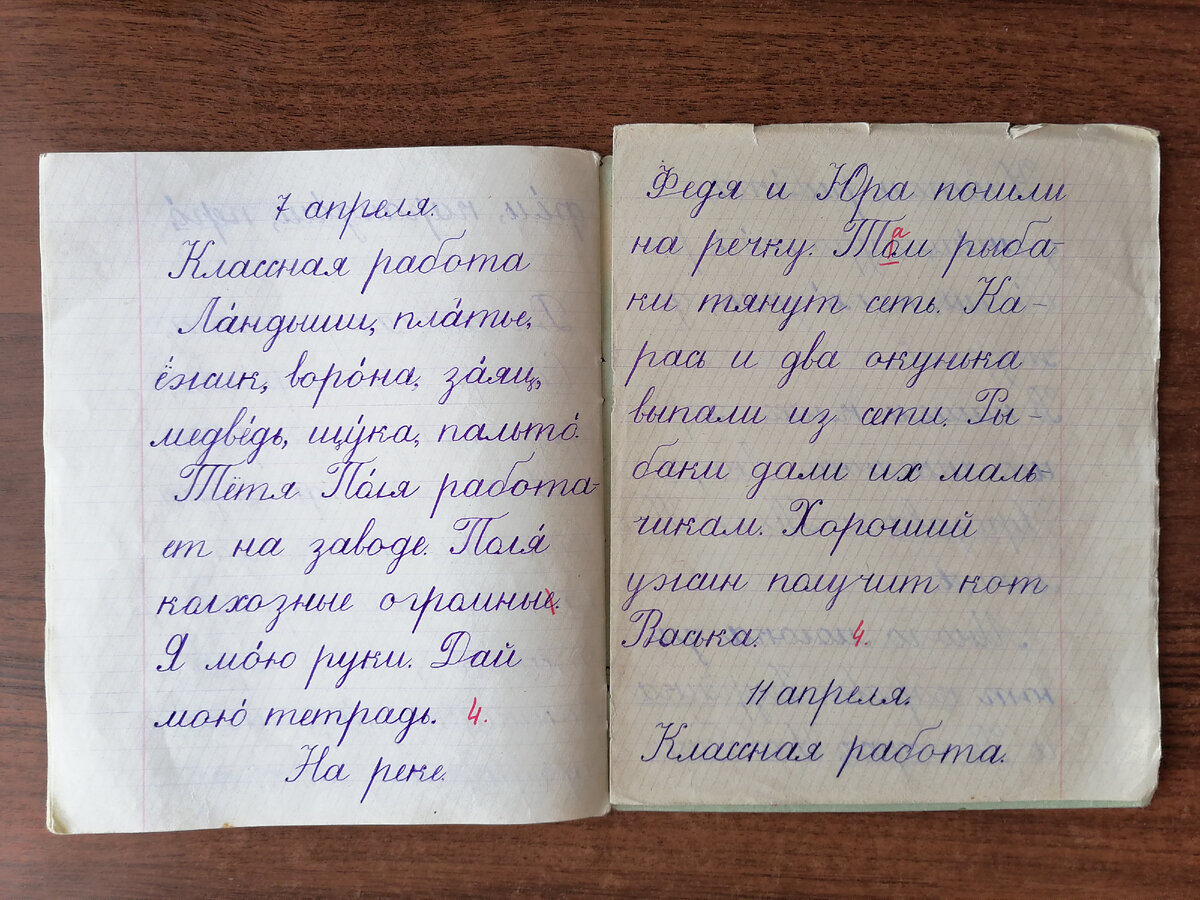 7 апреля.
Классная работа
Ла́ндыши, пла́тье,
ёжик, воро́на, за́яц,
медве́дь, щу́ка, пальто́.
Тётя По́ля работа-
ет на заводе. Поля́
колхозные огромные.
Я мо́ю руки. Дай
мою́ тетрадь. 4.
На реке.
Федя и Юра пошли
на ре́чку. Том рыба-
а
ки тянут сеть. Ка-
рась и два окунька
выпали из сети. Ры-
баки дали их маль
чикам. Хороший
ужин получит кот
Васька. 4.
11 апреля.
Классная работа.